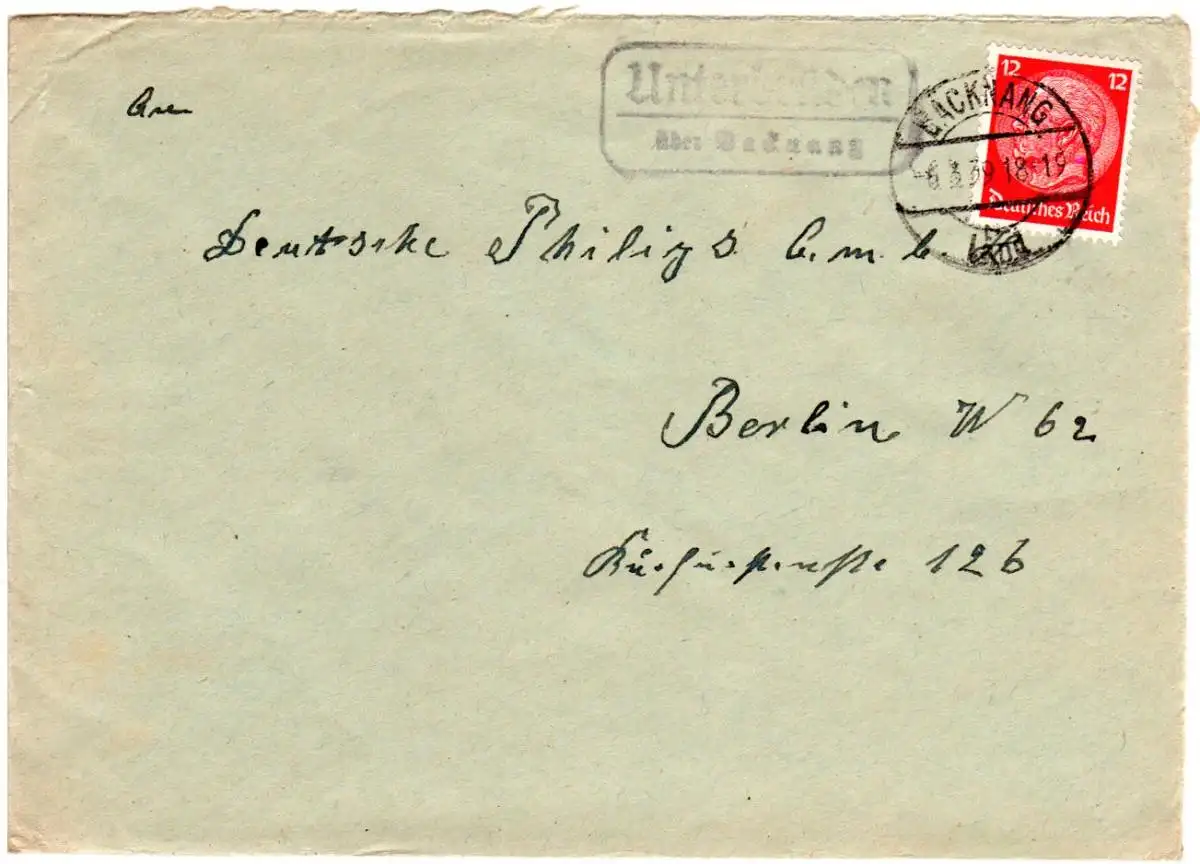 über Backnang
BACKNANG
6.3.39.18-19
Land
12 12
Deutsches Reich
An
Deutsche Philips G.m.b.
Berlin W 62
Kurfürstenstr 126